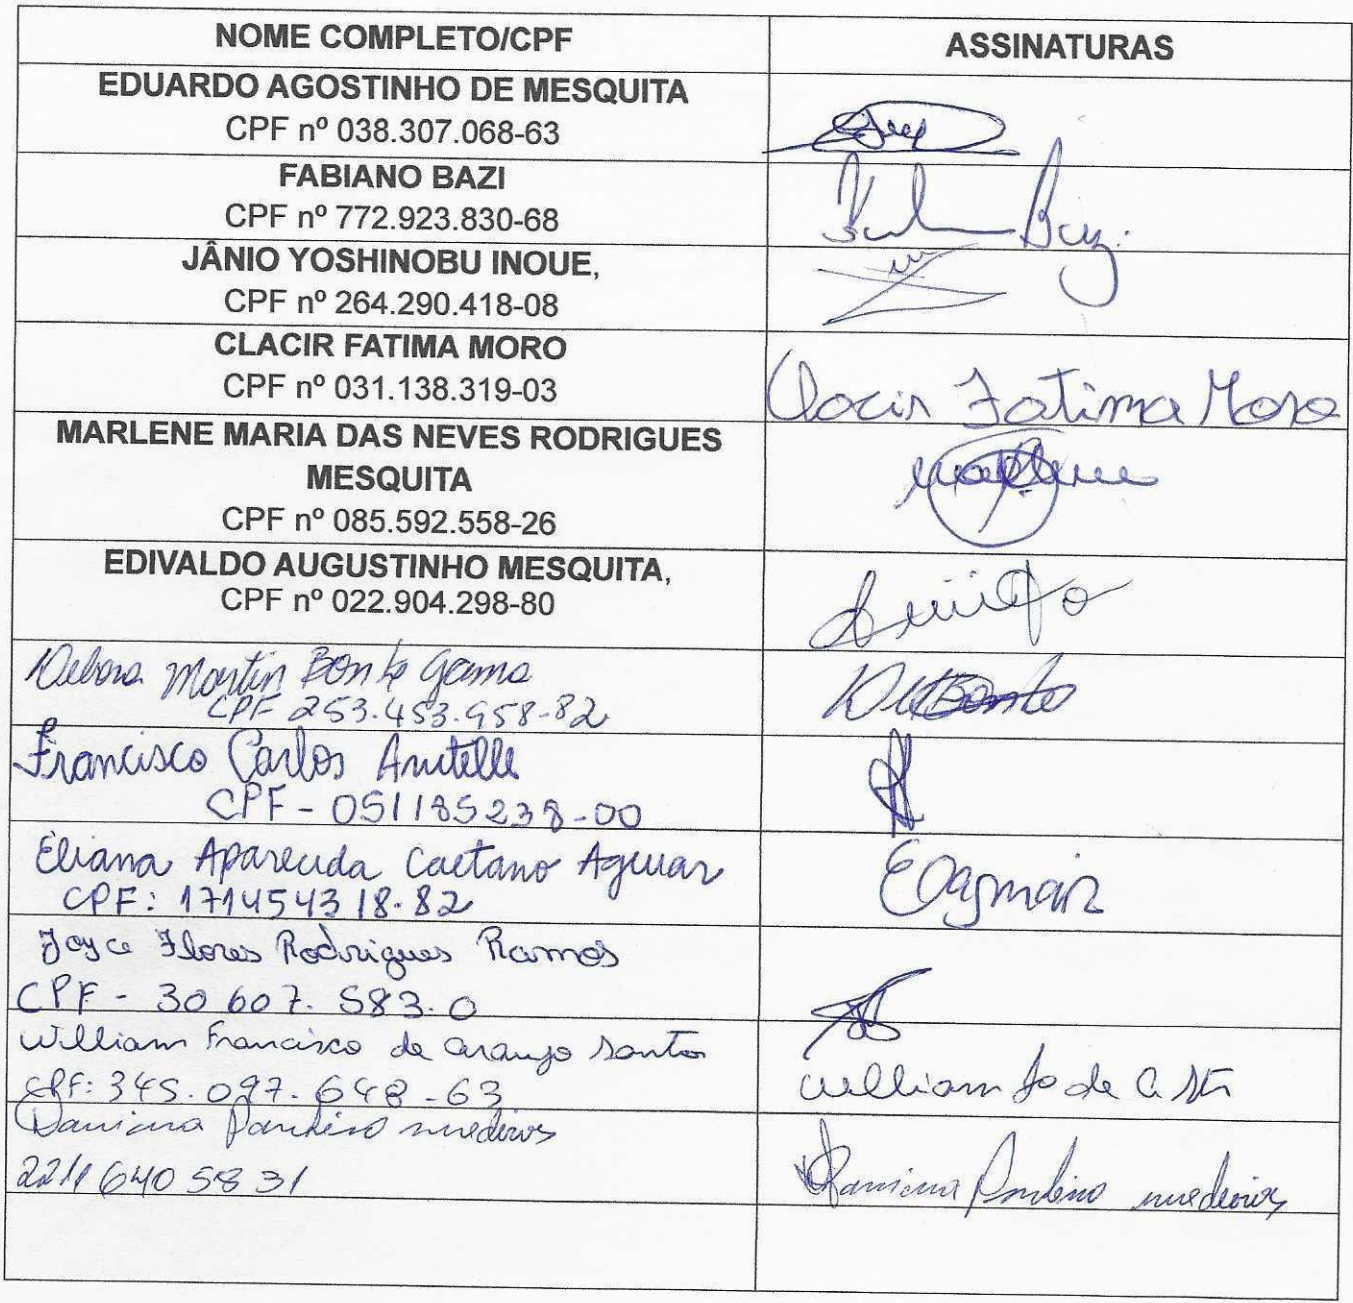 NOME COMPLETO/CPF
ASSINATURAS
EDUARDO AGOSTINHO DE MESQUITA
CPF nº 038.307.068-63
FABIANO BAZI
CPF nº 772.923.830-68
JÂNIO YOSHINOBU INOUE,
CPF nº 264.290.418-08
CLACIR FATIMA MORO
CPF nº 031.138.319-03
Clacir Fatima Moro
MARLENE MARIA DAS NEVES RODRIGUES
MESQUITA
CPF nº 085.592.558-26
Marlene
EDIVALDO AUGUSTINHO MESQUITA,
CPF nº 022.904.298-80
Debora Martin Bonke Gama
CPF 253.453.958-82
Francisco Carlos
CPF - 051185238-00
Eliana Aparecida Caetano Aguiar
CPF: 171454318-82
Joyce Flores Rodrigues Ramos
CPF - 30 607. 583.0
William Francisco de Araujo Santos
CPF: 345.097.648-63
William
medeiros
2211640 58 31
medeiros